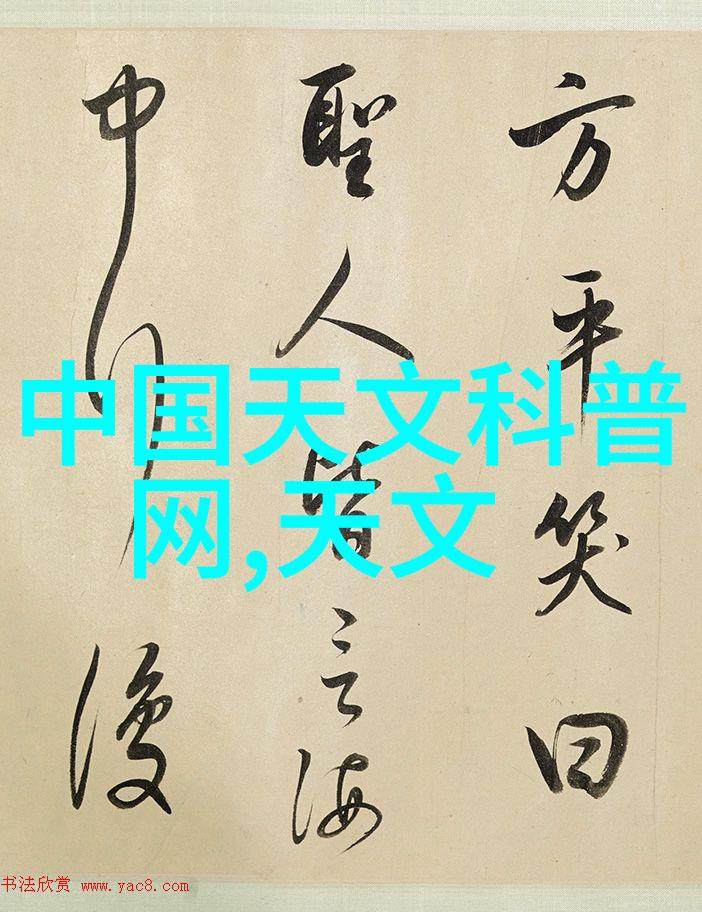 方平笑曰
聖人皆言海
中行復
中国天文科普
网,天文
书法欣赏 www.yac8.com